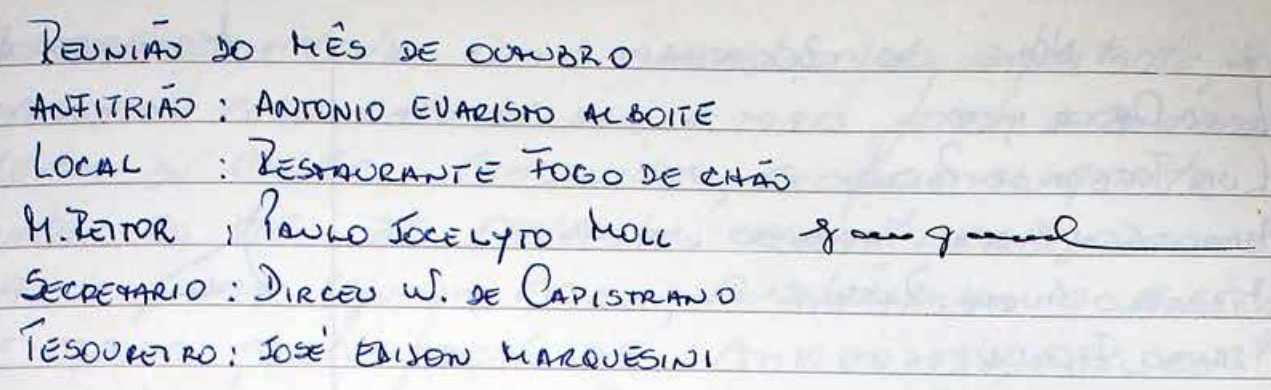 REUNIÃO DO MÊS DE OUTUBRO
ANFITRIÃO : ANTONIO EVARISTO ALBOITE
LOCAL : RESTAURANTE FOGO DE CHÃO
M. REITOR : PAULO JOCELYTO MOLL
SECRETARIO : DIRCEU W. DE CAPISTRANO
TESOUREIRO : JOSÉ EDISON MARQUESINI